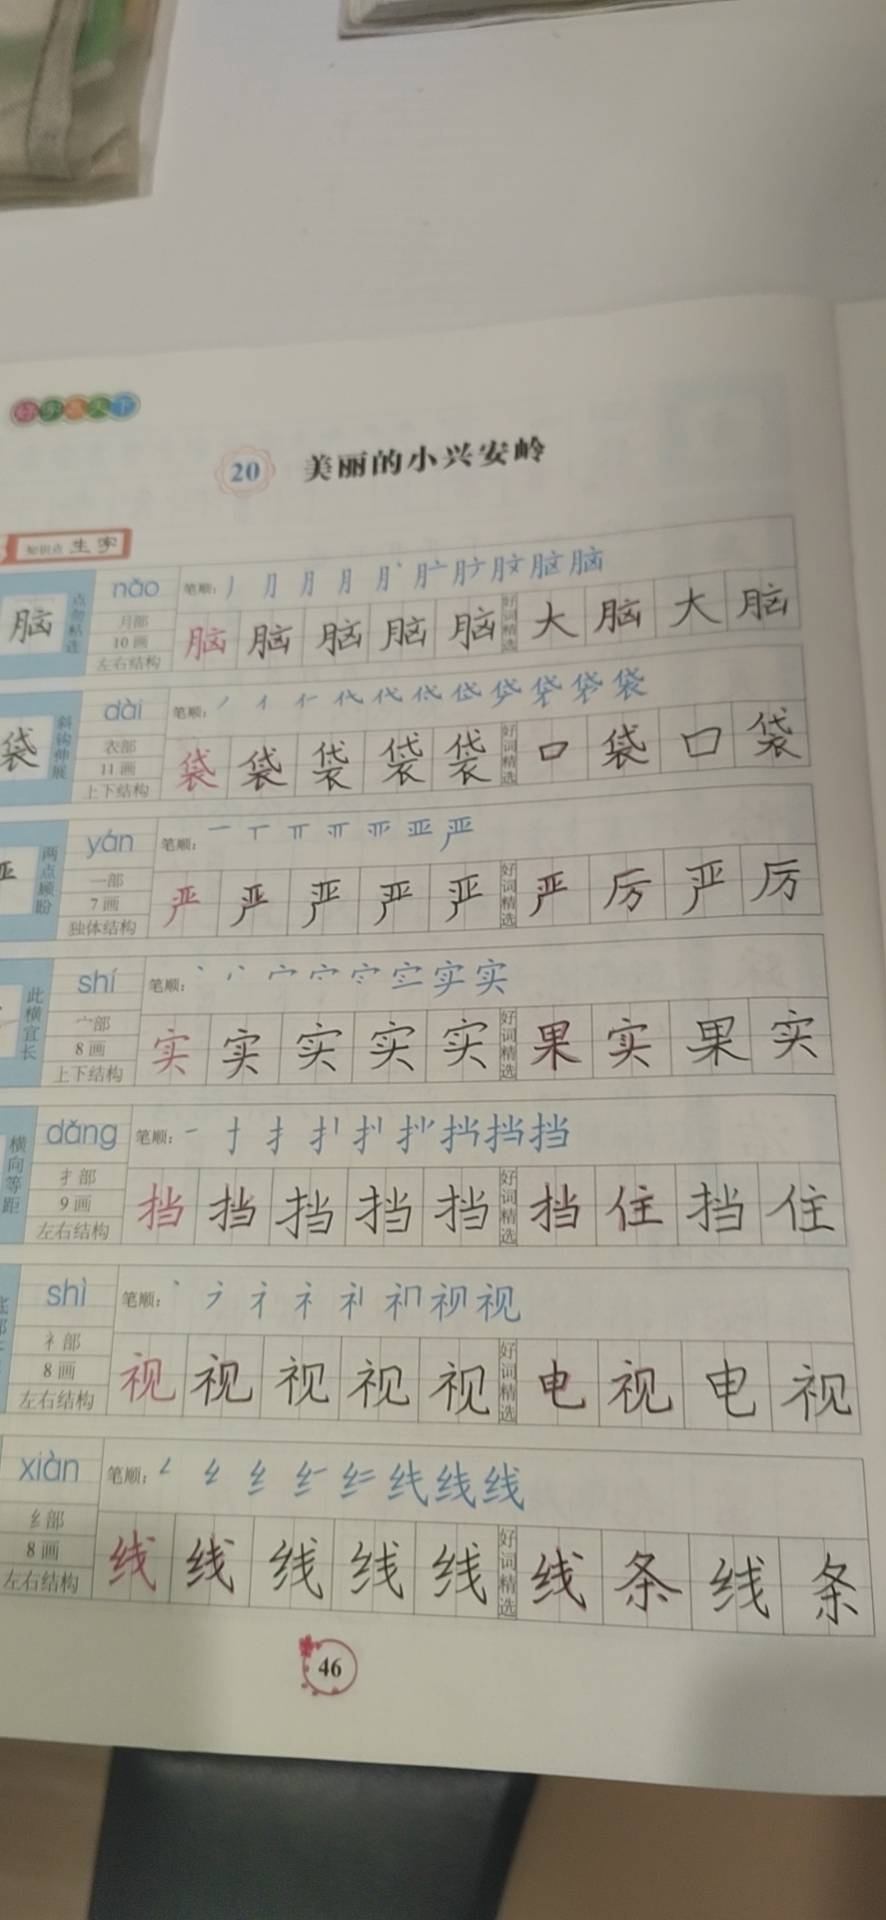 好字赢天下
20 美丽的小兴安岭
知识点 生字
脑 点勿粘连 nǎo 月部 10画 左右结构
笔顺: 脑 脑
脑 脑 脑 脑 脑 好词精选 大 脑 大 脑
袋 斜钩伸展 dài 衣部 11画 上下结构
笔顺: 袋
袋 袋 袋 袋 袋 好词精选 口 袋 口 袋
严 两点顾盼 yán 一部 7画 独体结构
笔顺: 一 丅 亚 严
严 严 严 严 严 好词精选 严 厉 严 厉
此横宜长 shí 宀部 8画 上下结构
笔顺: 丶 宀 实
实 实 实 实 实 好词精选 果 实 果 实
横向等距 dǎng 扌部 9画 左右结构
笔顺: 一 扌 挡
挡 挡 挡 挡 挡 好词精选 挡 住 挡 住
shì 礻部 8画 左右结构
笔顺: 丶 礻 视
视 视 视 视 视 好词精选 电 视 电 视
xiàn 纟部 8画 左右结构
笔顺: 纟 线 线 线
线 线 线 线 线 好词精选 线 条 线 条
46